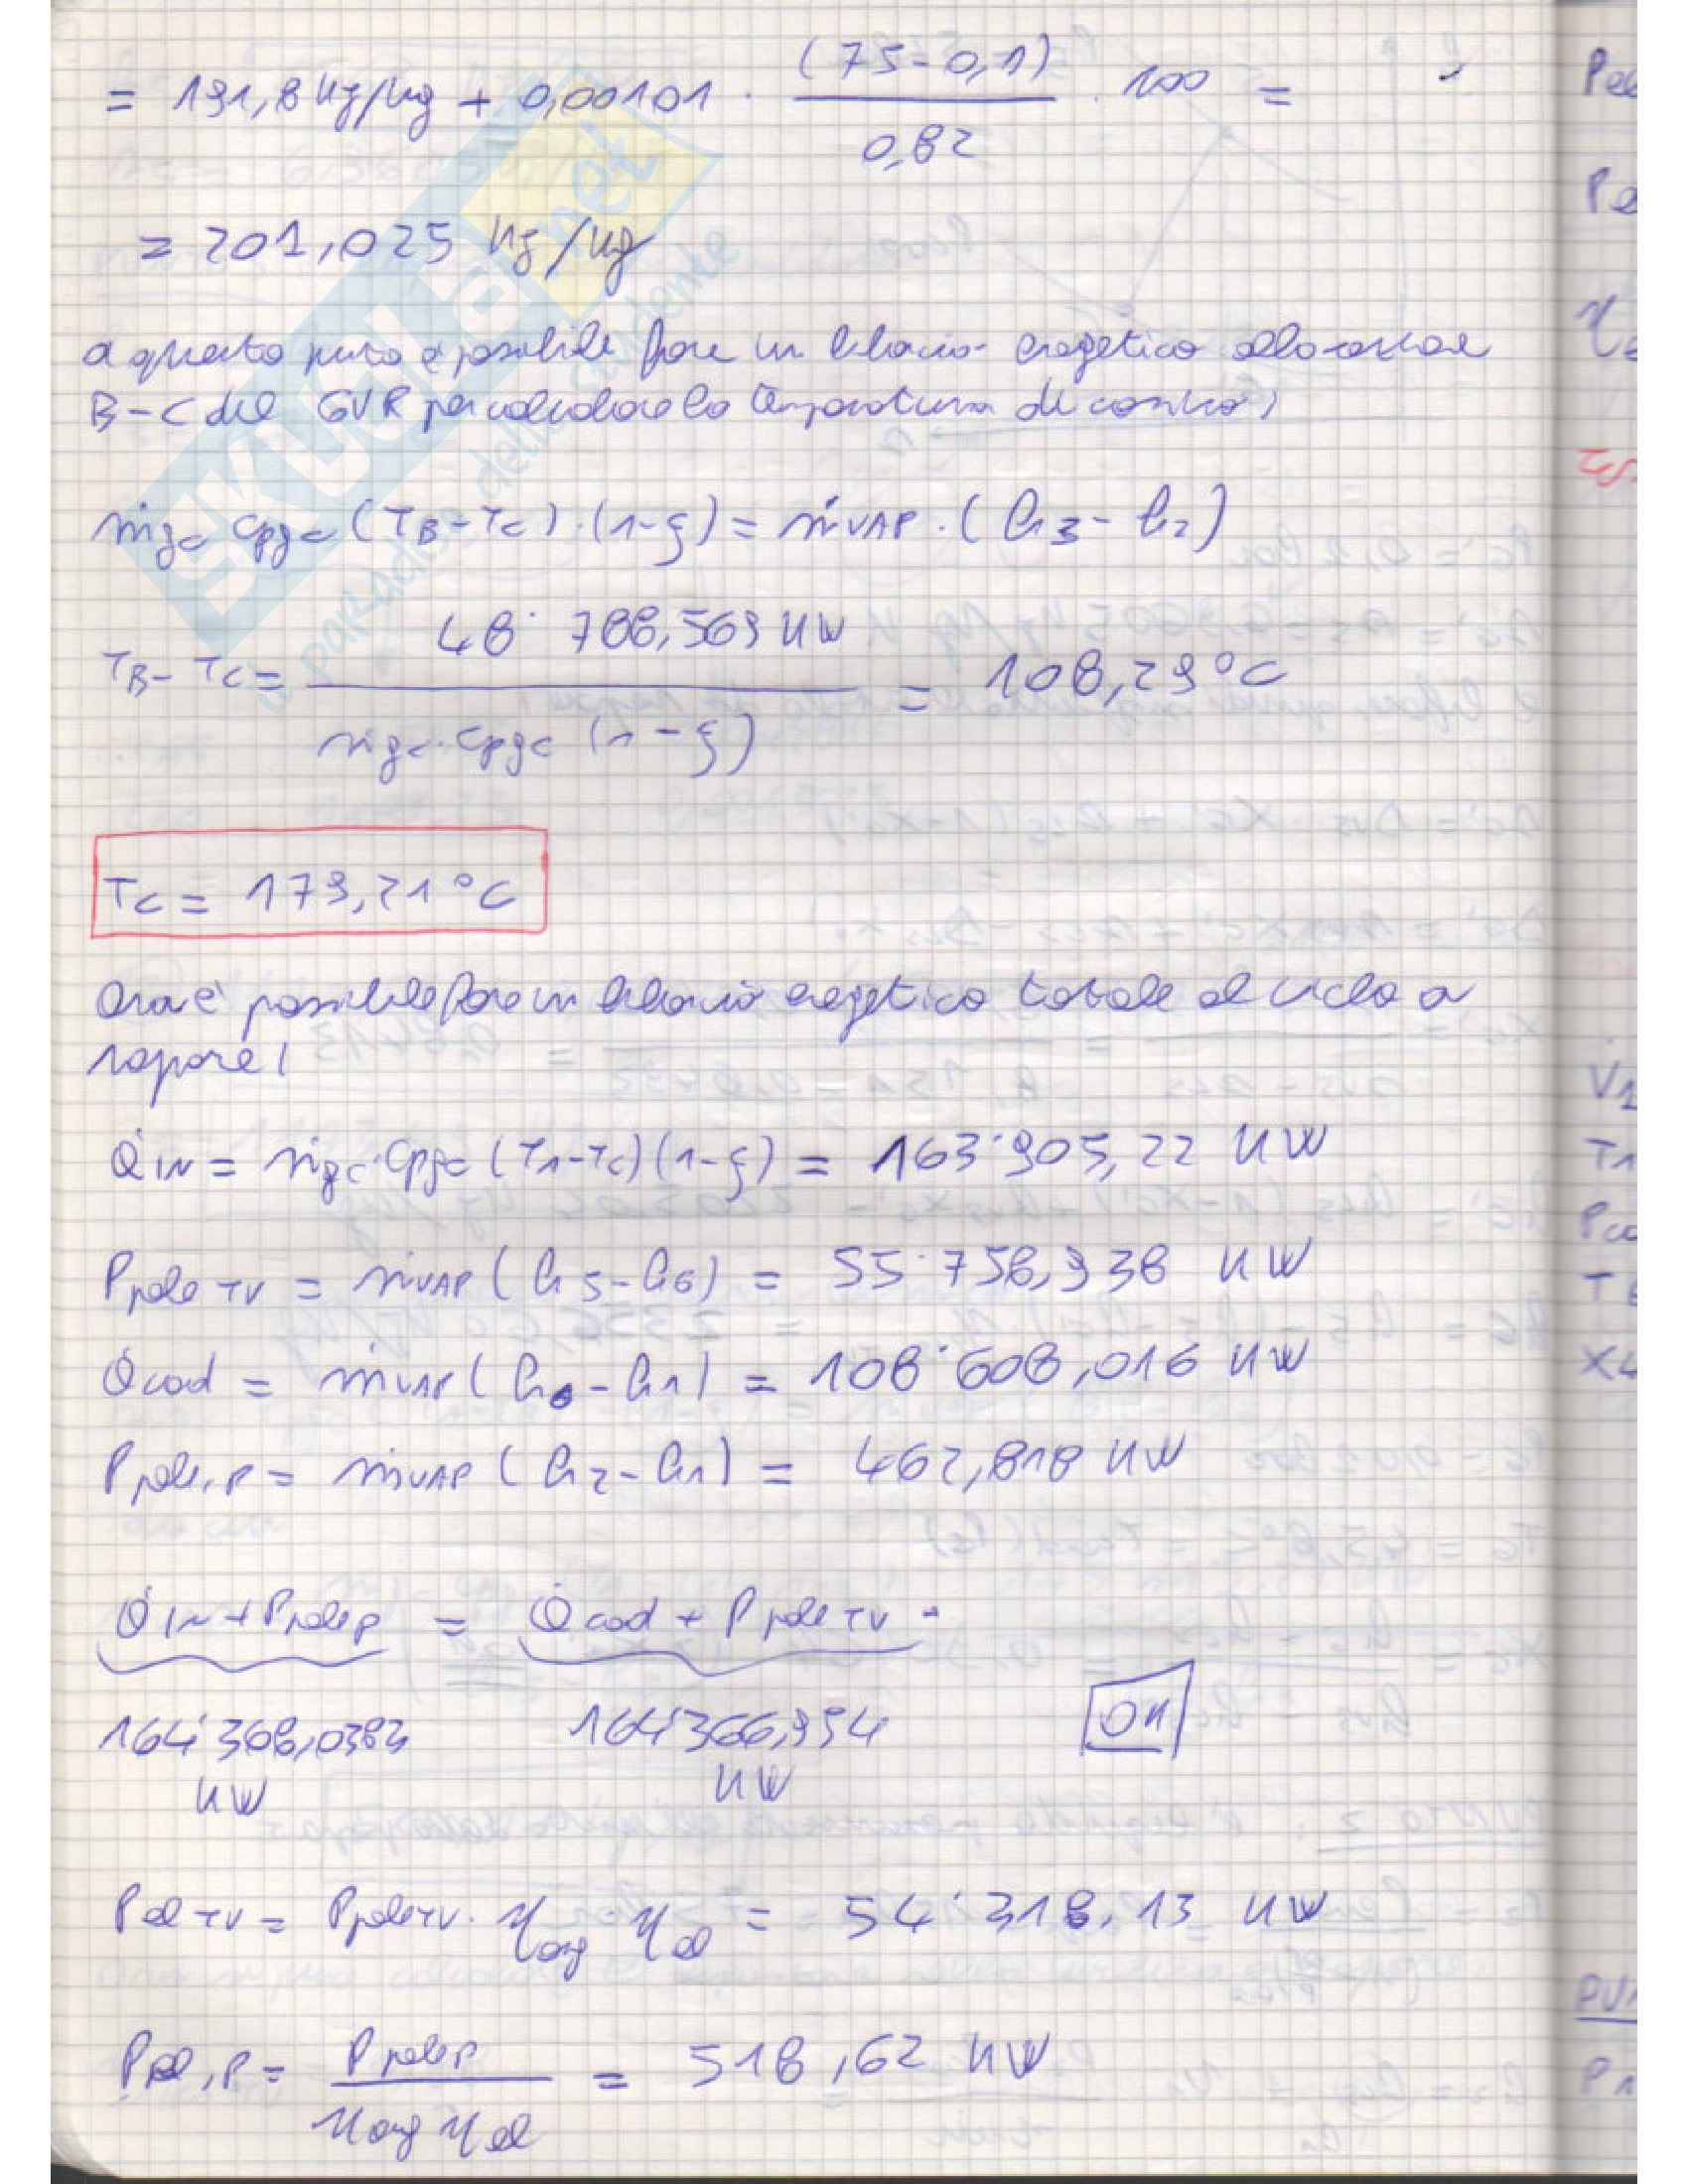 = 191,8 kJ/kg + 0,00101 · (75-0,1)/0,82 · 100 =
= 201,025 kJ/kg
a questo punto è possibile fare un bilancio energetico alla sezione
B-C del GVR per calcolare la temperatura di camino,
ṁgc cpgc (TB-TC)·(1-ξ) = ṁVAP·(h3-h2)
TB-TC = 48˙788,569 kW / ṁgc·cpgc (1-ξ) = 108,29°C
TC = 179,21°C
Ora è possibile fare un bilancio energetico totale al ciclo a
vapore!
Q̇IN = ṁgc·cpgc (T1-TC)(1-ξ) = 163˙905,22 kW
Ppale TV = ṁVAP (h5-h6) = 55˙758,938 kW
Q̇cod = ṁVAP (h6-h1) = 108˙608,016 kW
Ppale,P = ṁVAP (h2-h1) = 462,818 kW
Q̇IN + Ppale P = Q̇cod + Ppale TV
164˙368,0383 kW 164˙366,954 kW OK
Pel TV = Ppale TV · ηorg ηel = 54˙318,13 kW
Pel,P = Ppale P / ηorg ηel = 518,62 kW
SKUOLA.net
il paradiso dello studente